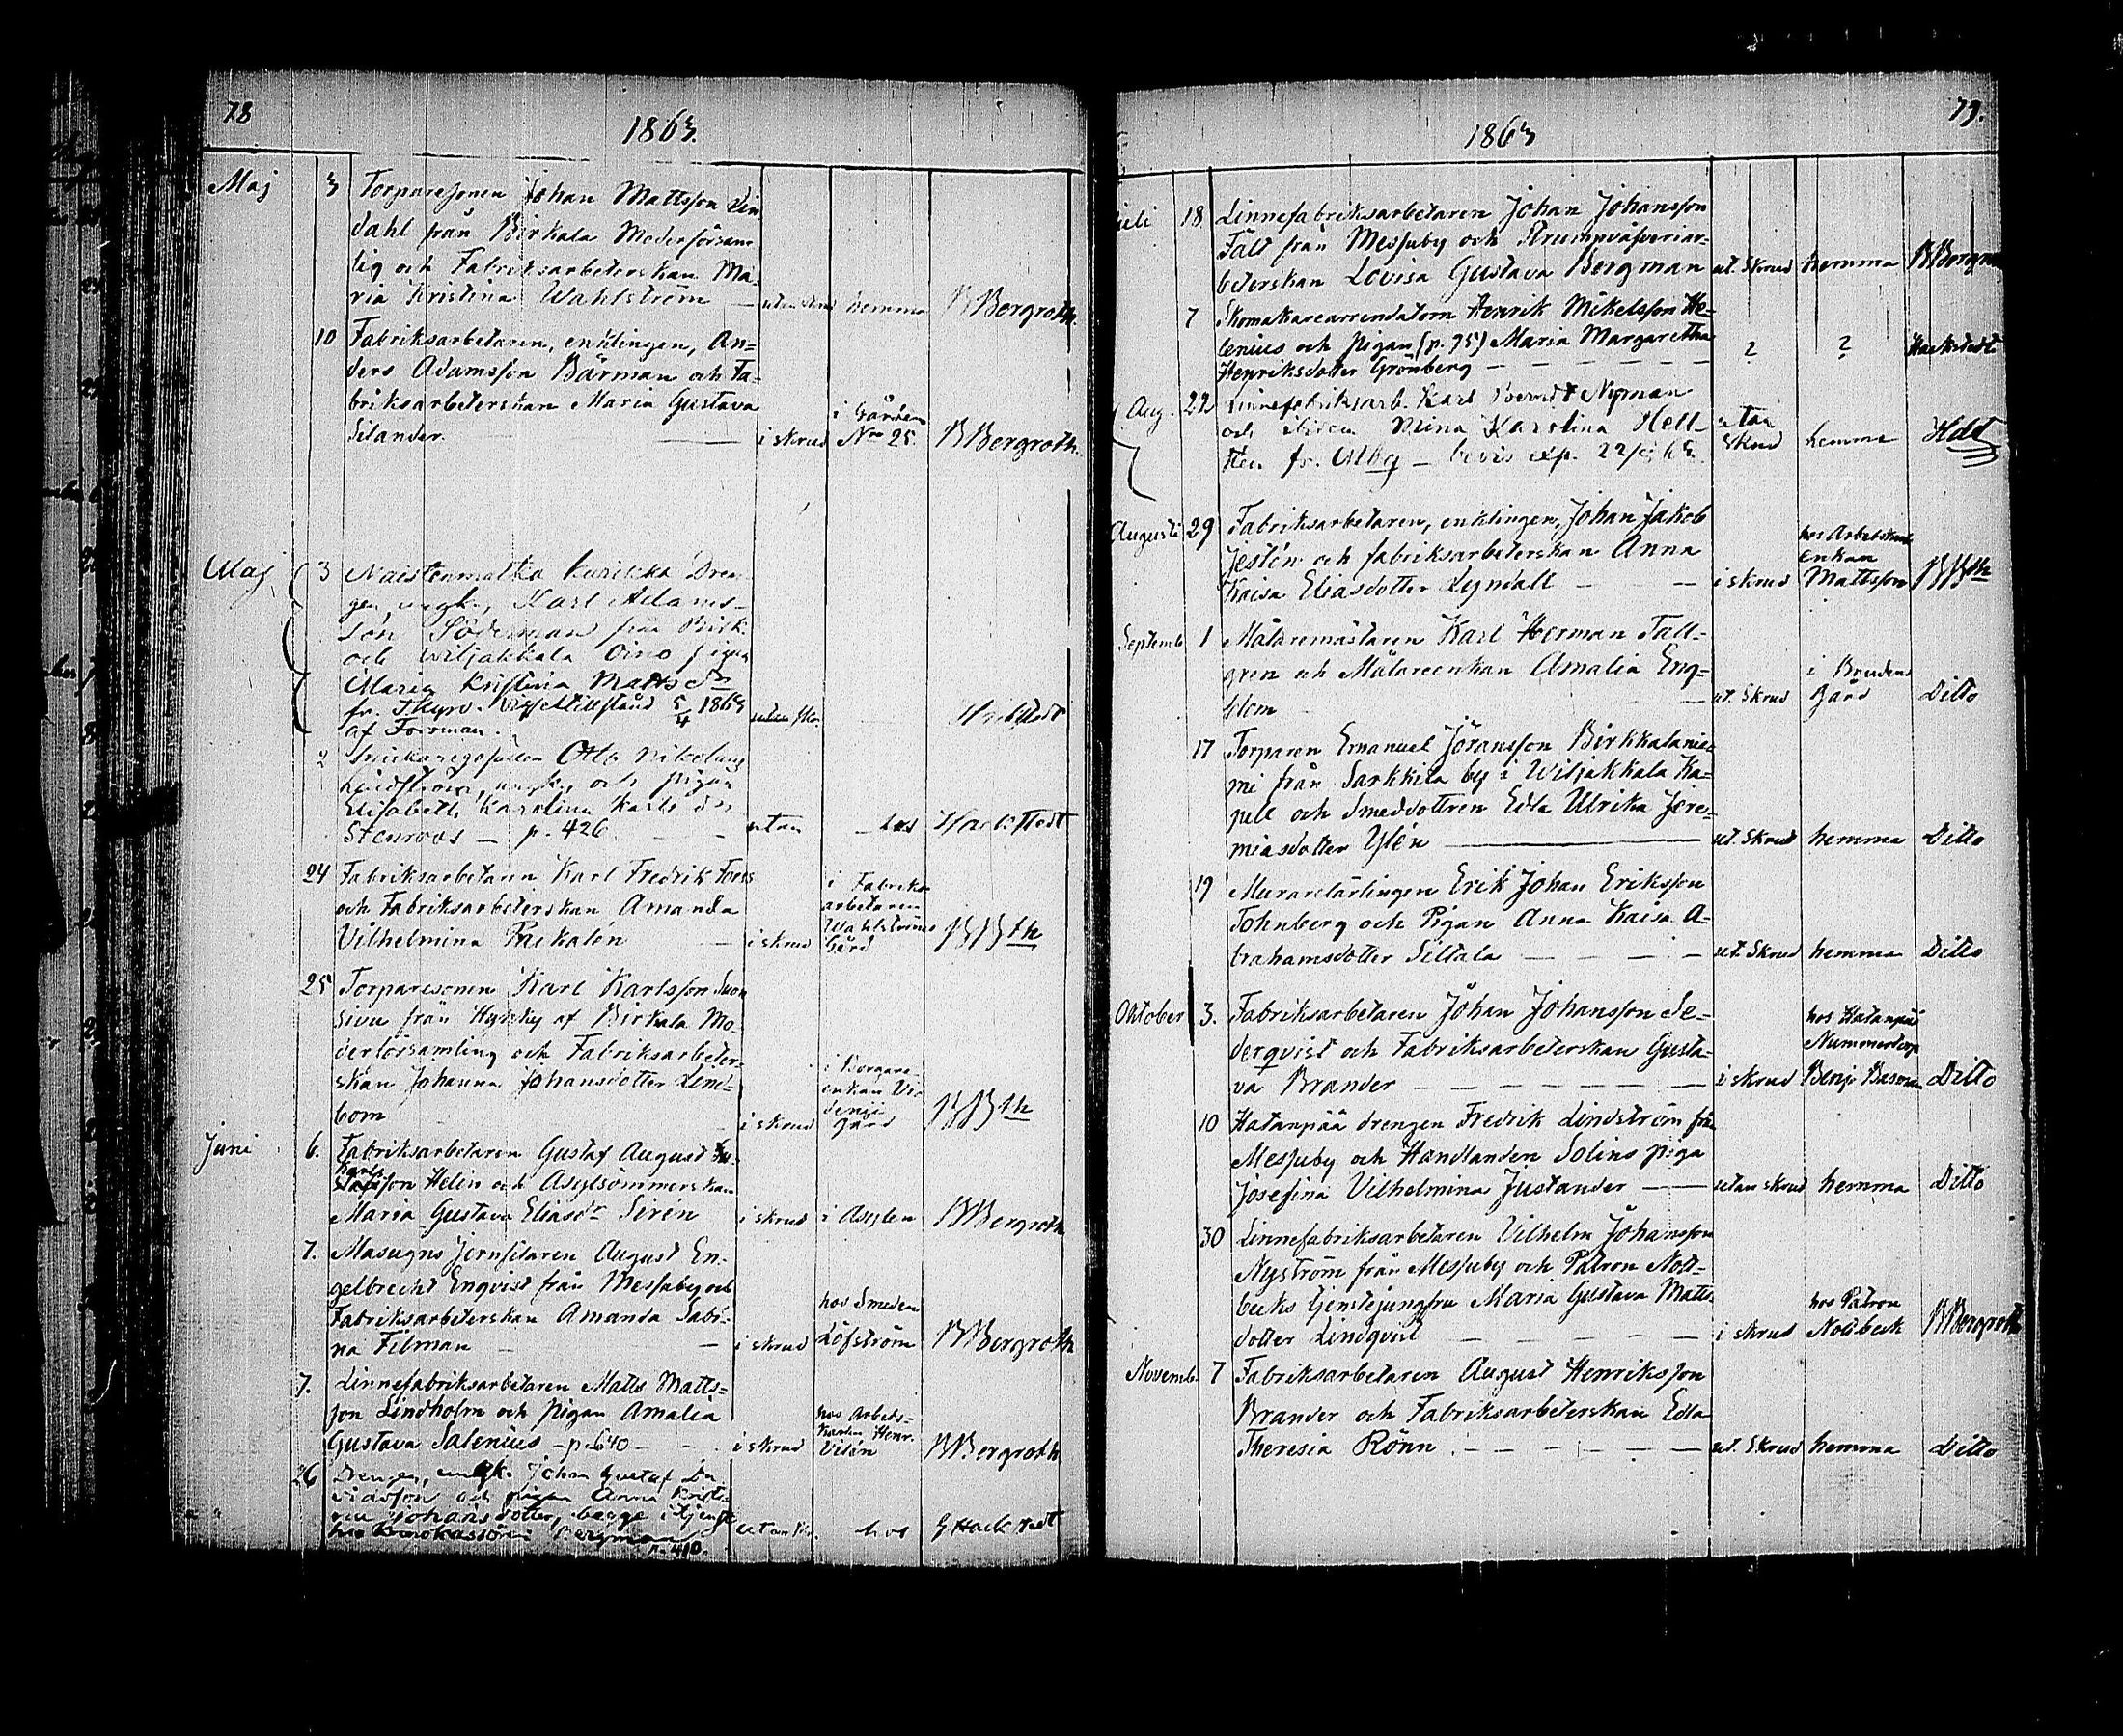 78
1863.
Maj 3 Torparesonen Johan Mattsson Lin
dahl från Birkala Moderförsam
lig och Fabriksarbeterskan Ma-
ria Kristina Wahlström — utan skrud hemma B Bergroth.
10 Fabriksarbetaren, enklingen, An=
ders Adamsson Bärman och Fa=
briksarbeterskan Maria Gustava
Silander. — i skrud i Gården No 25. B Bergroth.
Maj 3 Naistenmatka Kurikka Dren
gen, ungk., Karl Adams-
son Söderman från Birk.
och Wiljakkala Oino pigan
Maria Kristina Matts dr
fr. Ikyro. 5/4 1863 utan skr. Hackstedt
af Forsman.
2 Snickaregesellen Otto Nikolaus
Lindström, ungk. och pigan
Elisabeth Karolina Karls dr
Stenroos — p. 426 utan Hackstedt
24 Fabriksarbetaren Karl Fredrik Forss
och Fabriksarbeterskan Amanda
Vilhelmina Packalén — i skrud i Fabriks arbetaren Wahlströms Gård BBth
25 Torparesonen Karl Karlsson Suon
sivu från Hyhky af Birkala Mo
derförsamling och Fabriksarbeter-
skan Johanna Johansdotter Lind=
bom i skrud i Borgare enkan gård BBth
Juni 6. Fabriksarbetaren Gustaf August
Karls
son Helin och Asylsömmerskan
Maria Gustava Eliasdr Sirén i skrud i Asylen B Bergroth
7. Masugns August En-
gelbrecht Enqvist från Messuby och
Fabriksarbeterskan Amanda Sabi-
na Filman — i skrud hos Smeden Löfström B Bergroth
7. Linnefabriksarbetaren Matts Matts=
son Lindholm och Pigan Amalia
Gustava Salenius — p. 640 — i skrud hos Arbets= Karlen Henr. Vilén B Bergroth
26 Drengen, ungk. Johan Gustaf Da
vidsson och pigan Anna Kristi-
na Johansdotter, begge i tjenst
hos Bergman utan skr. hos G Hackstedt
p. 410.
79.
1863
Juli 18 Linnefabriksarbetaren Johan Johansson
Fält från Messuby och Strumpväfveriar-
beterskan Lovisa Gustava Bergman ut. Skrud hemma B Bergro
7 Skomakarearrendatorn Henrik Mikelsson He=
lenius och pigan (p. 95) Maria Margaretha
Henriksdotter Grönberg — — — — ? ? Hackstedt
Aug. 22 Linnefabriksarb. Karl Berndt Nyman
och Mina Karolina Hell-
sten fr. — bevis exp. 22/8 63. utan skrud hemma Hdt
Augusti 29 Fabriksarbetaren, enklingen, Johan Jakob
Jestén och fabriksarbeterskan Anna
Kaisa Eliasdotter Lyndall — — i skrud hos enkan Mattsson BBth
Septemb 1 Målaremästaren Karl Herman Tall-
gren och Målareenkan Amalia Eng=
blom — ut. Skrud i Brudens Gård Ditto
17 Torparen Emanuel Jöransson Birkkalanie
mi från Sarkkila by i Wiljakkala Ka=
pell och Smeddottren Edla Ulrika Jere=
miasdotter Ylén — ut. Skrud hemma Ditto
19 Murarelärlingen Erik Johan Eriksson
Tohnberg och Pigan Anna Kaisa A=
brahamsdotter Siltala — — — ut. Skrud hemma Ditto
Oktober 3. Fabriksarbetaren Johan Johansson Se-
derqvist och Fabriksarbeterskan Gusta=
va Brander — — — — — i skrud hos Hatanpää Nummertorp Benj. Ditto
10 Hatanpää drengen Fredrik Lindström från
Messuby och Handlanden Solins piga
Josefina Vilhelmina Justander — — utan skrud hemma Ditto
30 Linnefabriksarbetaren Vilhelm Johansson
Nyström från Messuby och Patron Nott-
becks tjenstejungfru Maria Gustava Matts
dotter Lindqvist — — — — i skrud hos Patron Nottbeck B Bergroth
Novemb. 7 Fabriksarbetaren August Henriksson
Brander och Fabriksarbeterskan Edla
Theresia Rönn. — — — — — ut. Skrud hemma Ditto